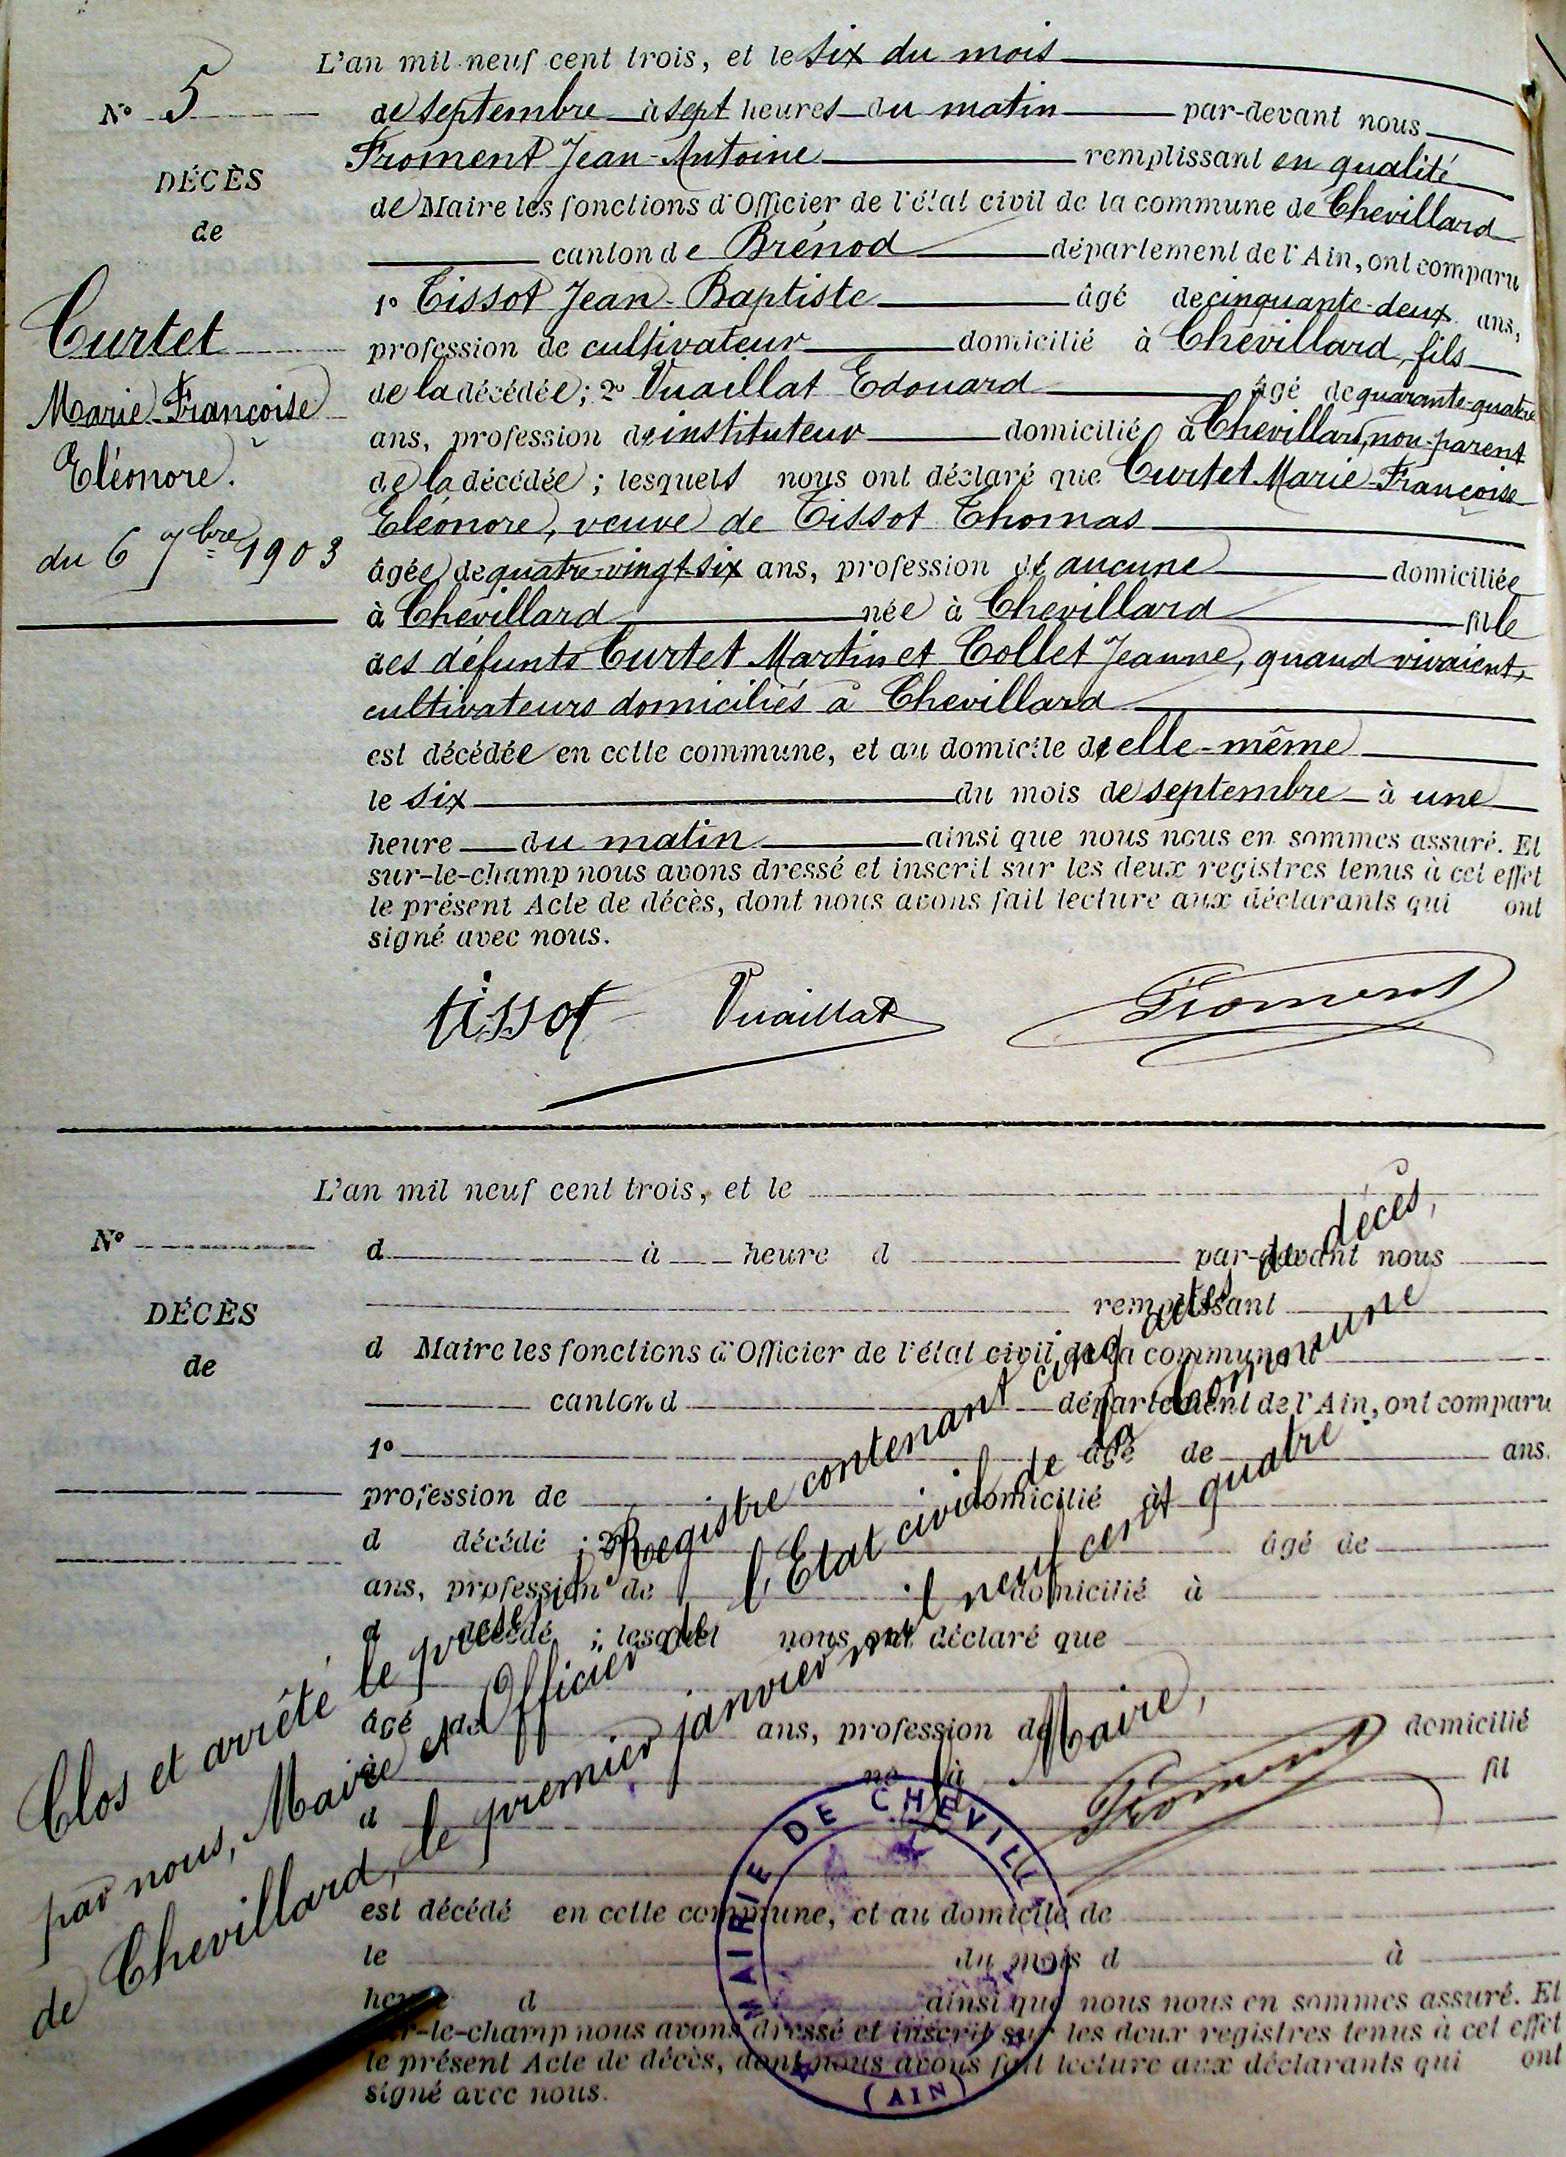 L'an mil neuf cent trois, et le six du mois
N° 5
de septembre à sept heures du matin par-devant nous
Froment Jean-Antoine remplissant en qualité
DÉCÈS
de Maire les fonctions d'Officier de l'état civil de la commune de Chevillard
de
canton de Brénod département de l'Ain, ont comparu
1° Tissot Jean-Baptiste âgé de cinquante-deux ans,
Curtet
profession de cultivateur domicilié à Chevillard, fils
de la décédée; 2° Vuaillat Edouard âgé de quarante-quatre
Marie-Françoise
ans, profession de instituteur domicilié à Chevillard, non-parent
Eléonore.
de la décédée; lesquels nous ont déclaré que Curtet Marie-Françoise
Eléonore, veuve de Tissot Thomas
du 6 7bre 1903
âgée de quatre-vingt-six ans, profession de aucune domiciliée
à Chevillard née à Chevillard fille
des défunts Curtet Martin et Collet Jeanne, quand vivaient,
cultivateurs domiciliés à Chevillard
est décédée en cette commune, et au domicile de elle-même
le six du mois de septembre à une
heure du matin ainsi que nous nous en sommes assuré. Et
sur-le-champ nous avons dressé et inscrit sur les deux registres tenus à cet effet
le présent Acte de décès, dont nous avons fait lecture aux déclarants qui ont
signé avec nous.
tissot Vuaillat Froment
L'an mil neuf cent trois, et le
N°
d à heure d par-devant nous
remplissant
DÉCÈS
d Maire les fonctions d'Officier de l'état civil de la commune d
de
canton d département de l'Ain, ont comparu
1° âgé de ans.
profession de domicilié à
d décédé ; 2° âgé de
ans, profession de domicilié à
d décédé ; lesquel nous ont déclaré que
âgé de ans, profession de domicilié
à né à fil
d
est décédé en cette commune, et au domicile de
le du mois d à
heure d ainsi que nous nous en sommes assuré. Et
sur-le-champ nous avons dressé et inscrit sur les deux registres tenus à cet effet
le présent Acte de décès, dont nous avons fait lecture aux déclarants qui ont
signé avec nous.
Clos et arrêté le présent Registre contenant cinq actes de décès,
par nous, Maire et Officier de l'Etat civil de la Commune
de Chevillard, le premier janvier mil neuf cent quatre.
Le Maire,
Froment
MAIRIE DE CHEVILL
(AIN)